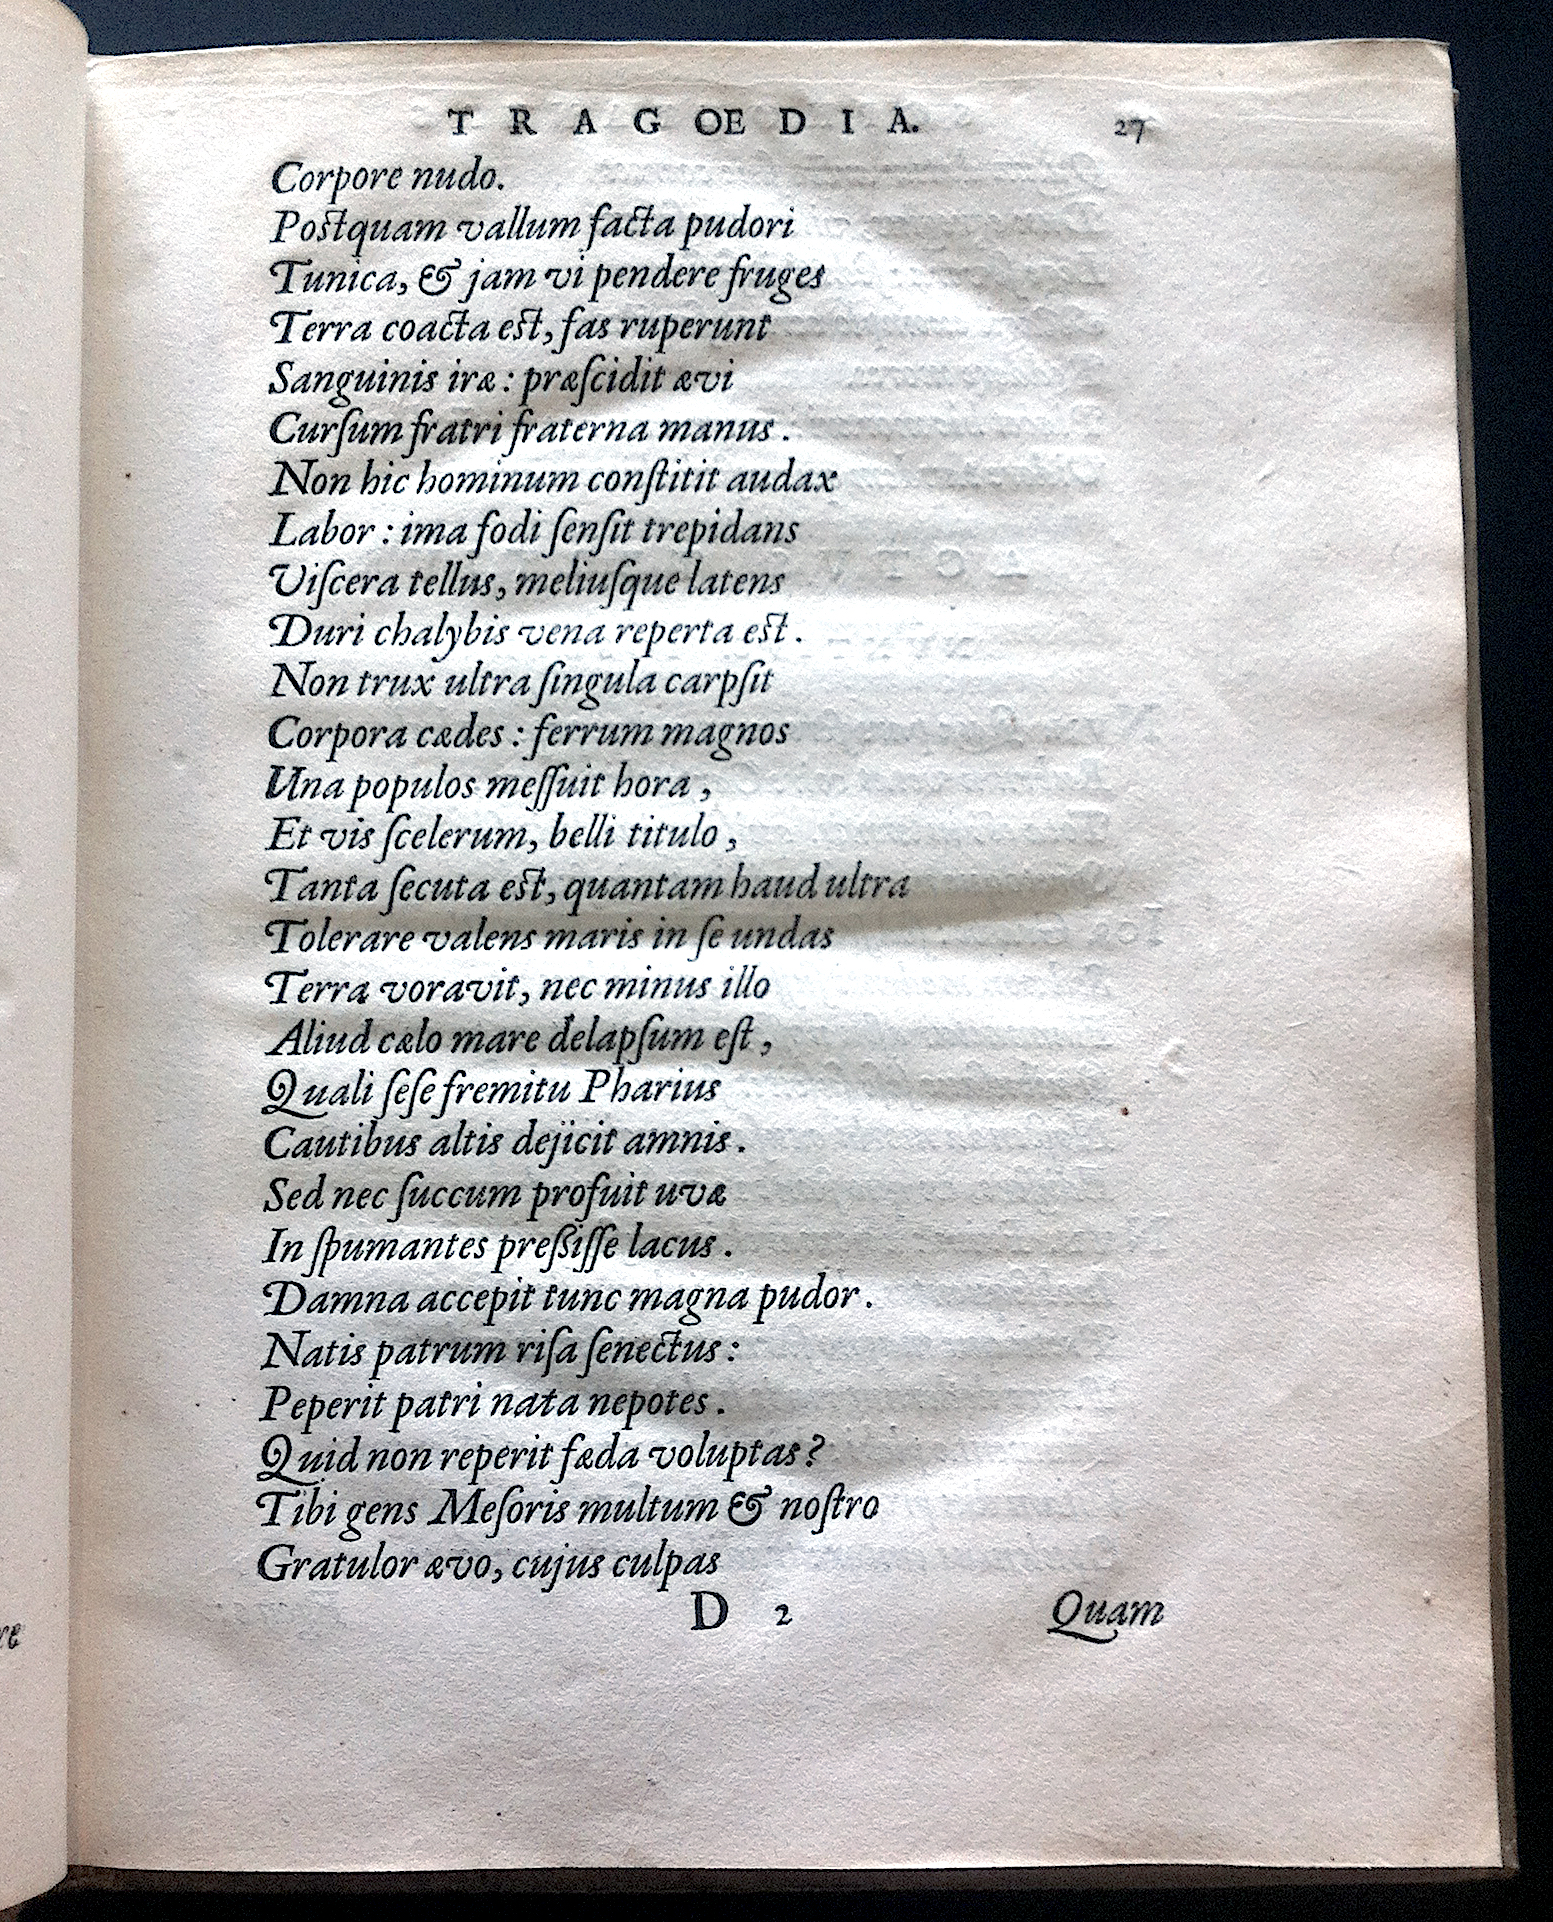 TRAGŒDIA. 27
Corpore nudo.
Postquam vallum facta pudori
Tunica, & jam vi pendere fruges
Terra coacta est, fas ruperunt
Sanguinis iræ : præſcidit ævi
Curſum fratri fraterna manus .
Non hic hominum conſtitit audax
Labor : ima fodi ſenſit trepidans
Viſcera tellus, meliuſque latens
Duri chalybis vena reperta est .
Non trux ultra ſingula carpſit
Corpora cædes : ferrum magnos
Una populos meſſuit hora ,
Et vis ſcelerum, belli titulo ,
Tanta ſecuta est, quantam haud ultra
Tolerare valens maris in ſe undas
Terra voravit, nec minus illo
Aliud cælo mare delapſum eſt ,
Quali ſeſe fremitu Pharius
Cautibus altis dejicit amnis .
Sed nec ſuccum profuit uvæ
In ſpumantes preßiſſe lacus .
Damna accepit tunc magna pudor .
Natis patrum riſa ſenectus :
Peperit patri nata nepotes .
Quid non reperit fæda voluptas?
Tibi gens Meſoris multum & noſtro
Gratulor ævo, cujus culpas
D 2 Quam